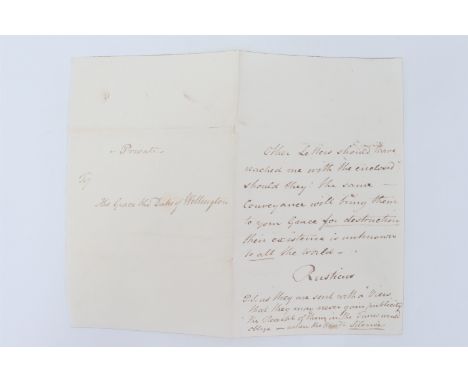 - Private -
To
His Grace the Duke of Wellington
Other Letters should have
reached me with the enclosed
should they the same -
Conveyance will bring them
to your Grace for destruction
their existence is unknown
to all the world -
Rusticus
P.S. as they are sent with a View
that they may never gain publicity
the of them in the Times would
oblige - Silence